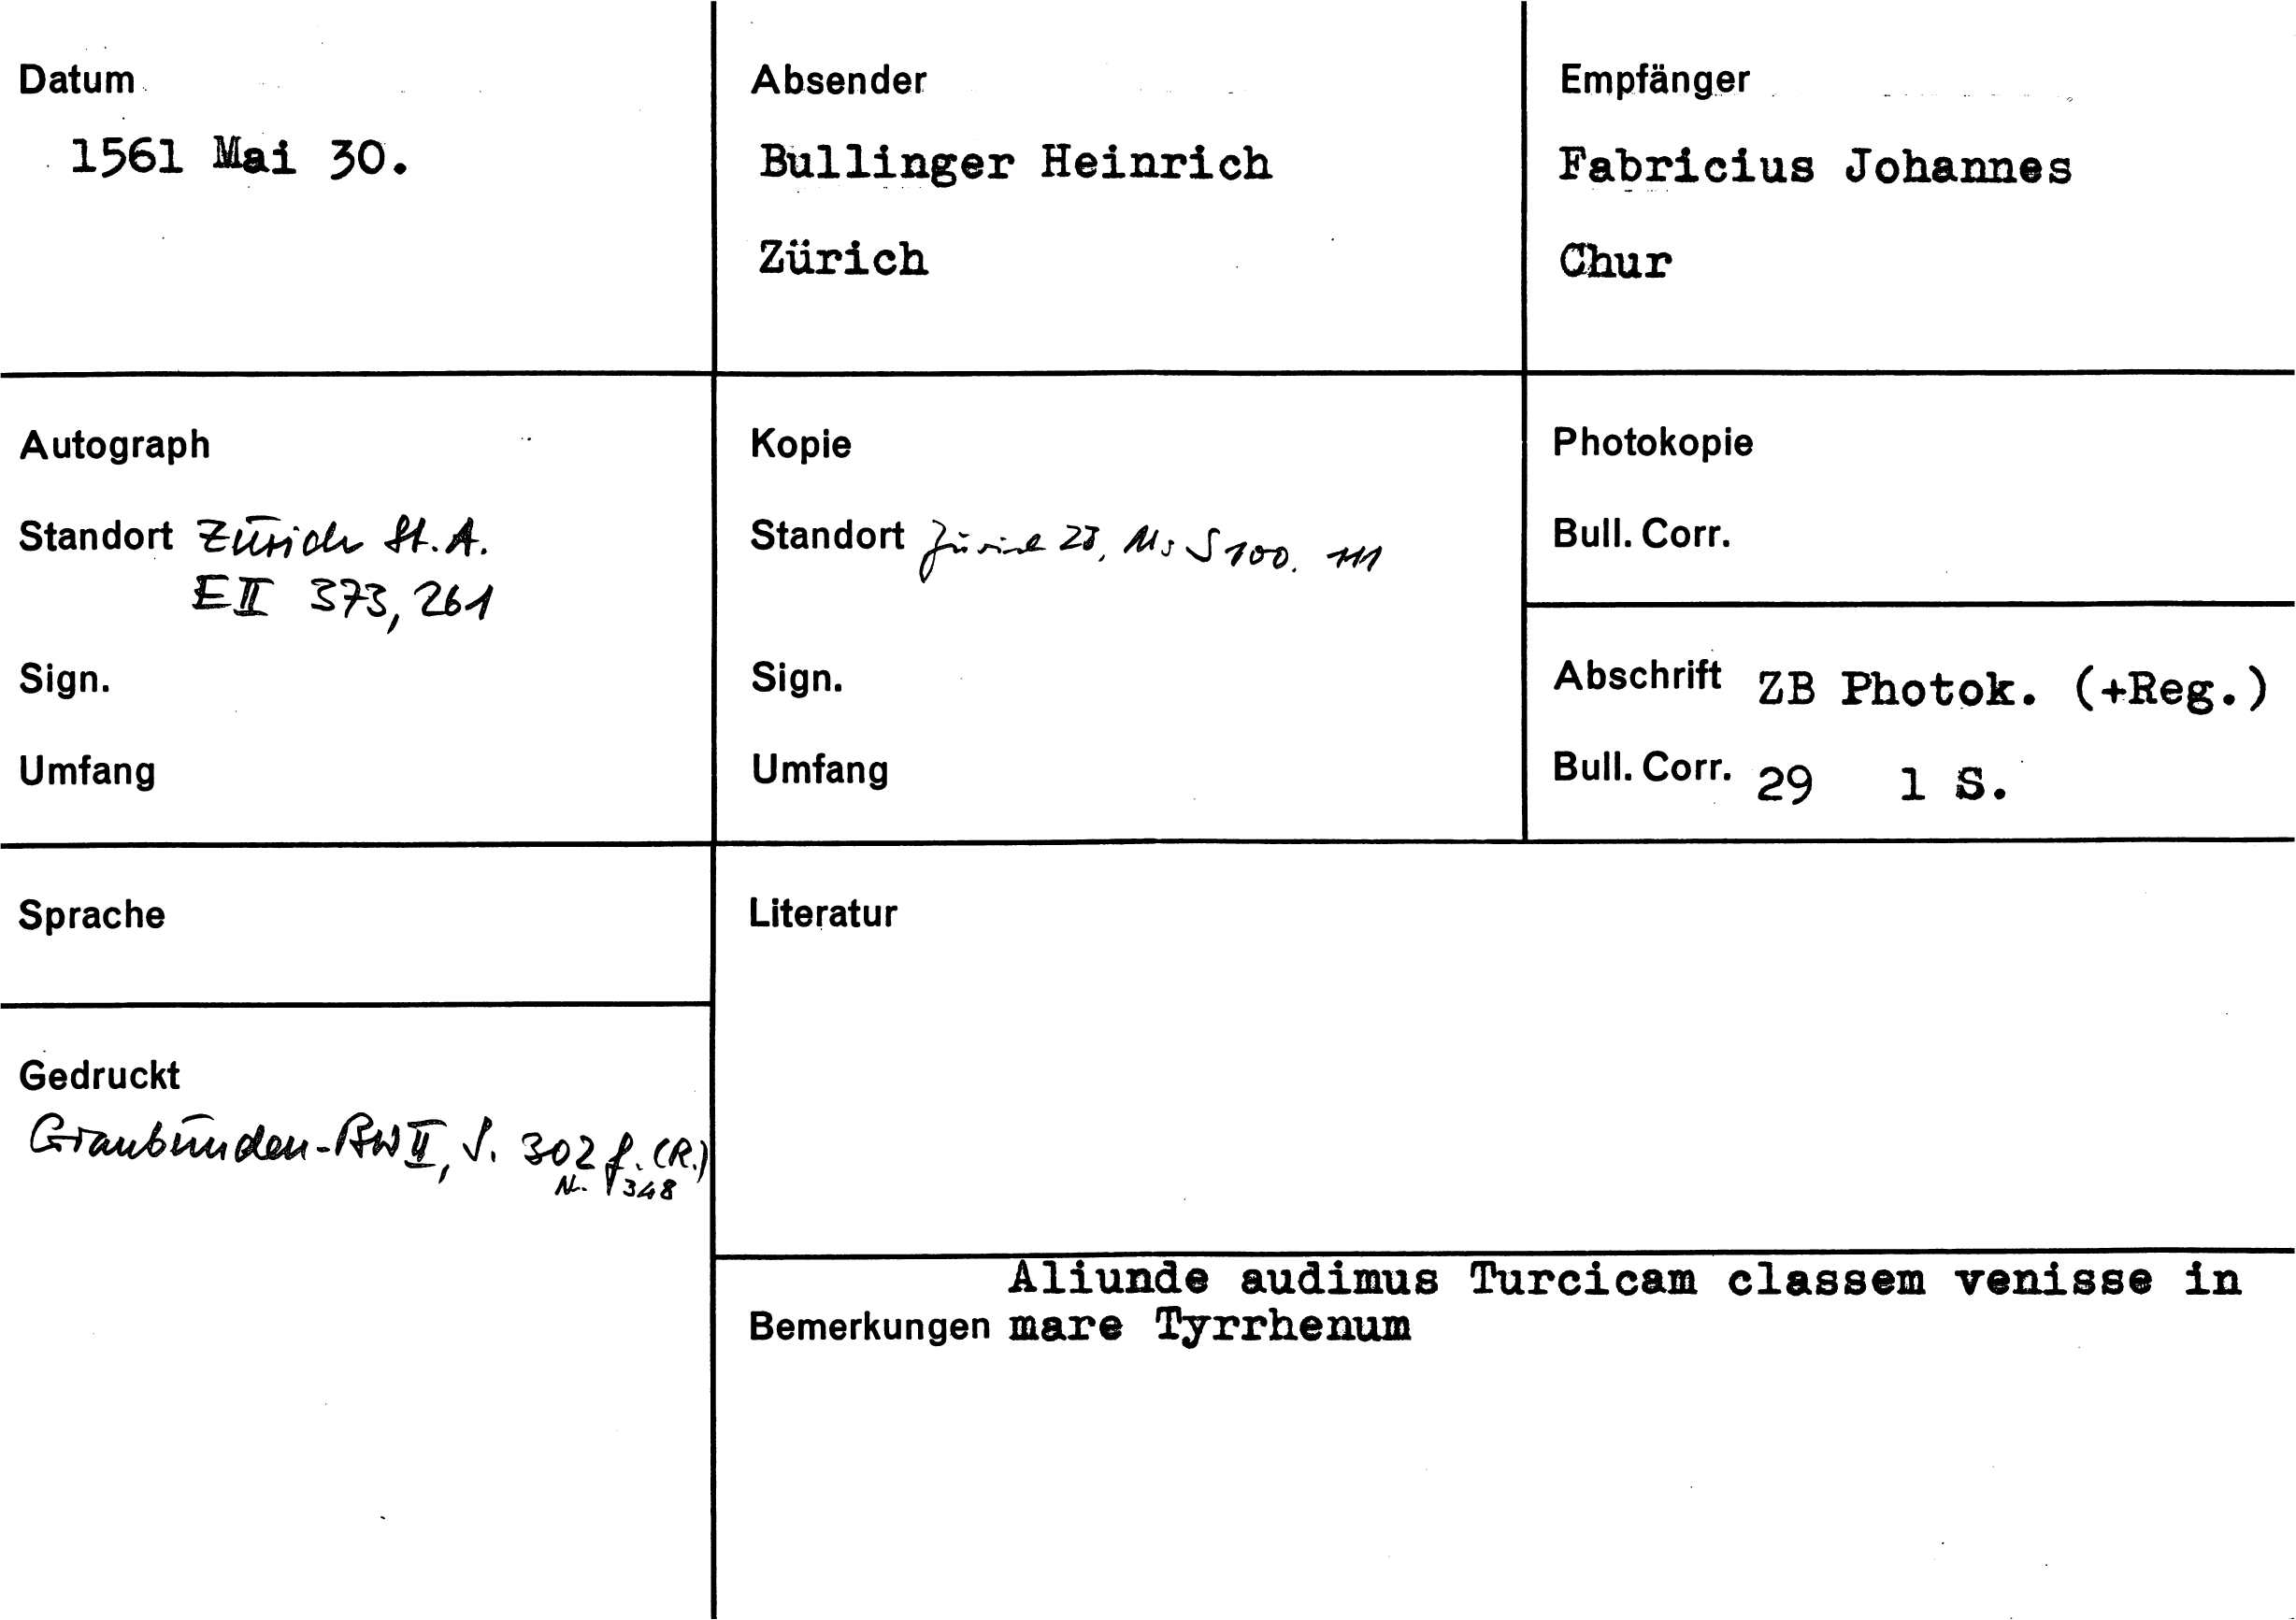 Datum
1561 Mai 30.
Absender
Bullinger Heinrich
Zürich
Empfänger
Fabricius Johannes
Chur
Autograph
Standort Zürich St.A.
E II 373, 261
Sign.
Umfang
Kopie
Standort Zürich ZB, Ms S 100. 111
Sign.
Umfang
Photokopie
Bull. Corr.
Abschrift ZB Photok. (+Reg.)
Bull. Corr. 29 1 S.
Sprache
Gedruckt
Graubünden-BW II, S. 302 f. (R.)
Nr. 348
Literatur
Aliunde audimus Turcicam classem venisse in
Bemerkungen mare Tyrrhenum